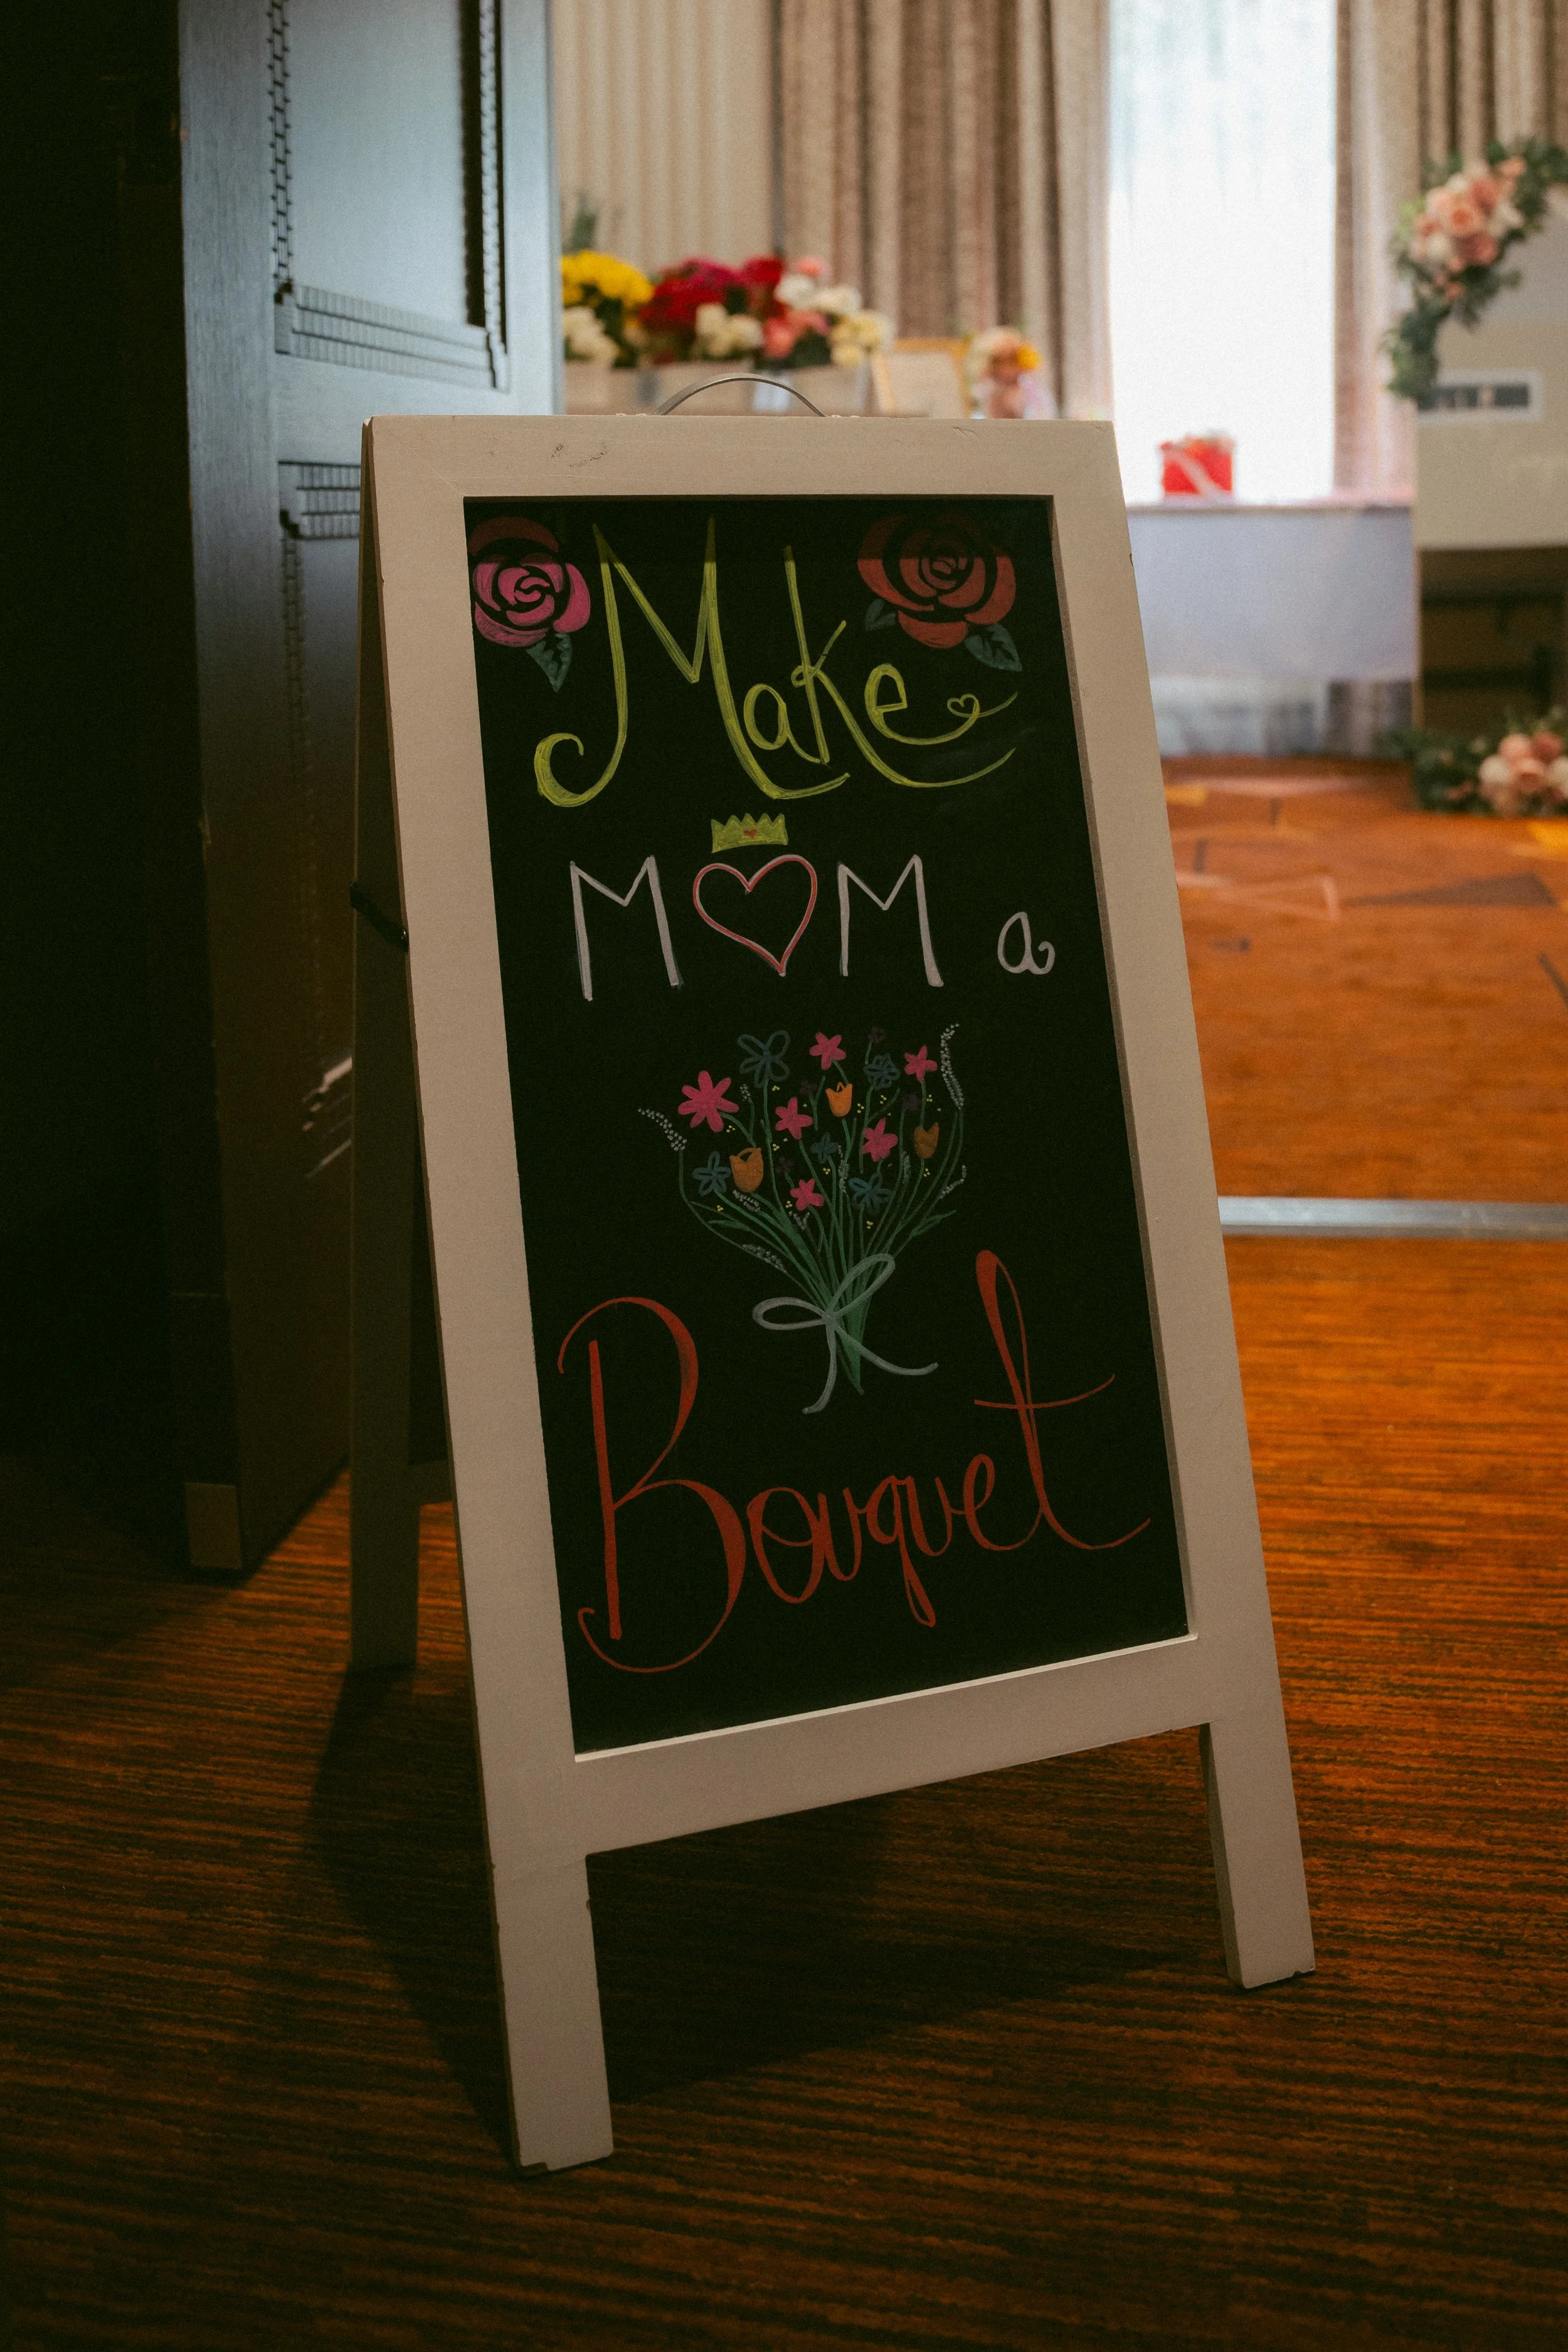 Make
MOM a
Bouquet